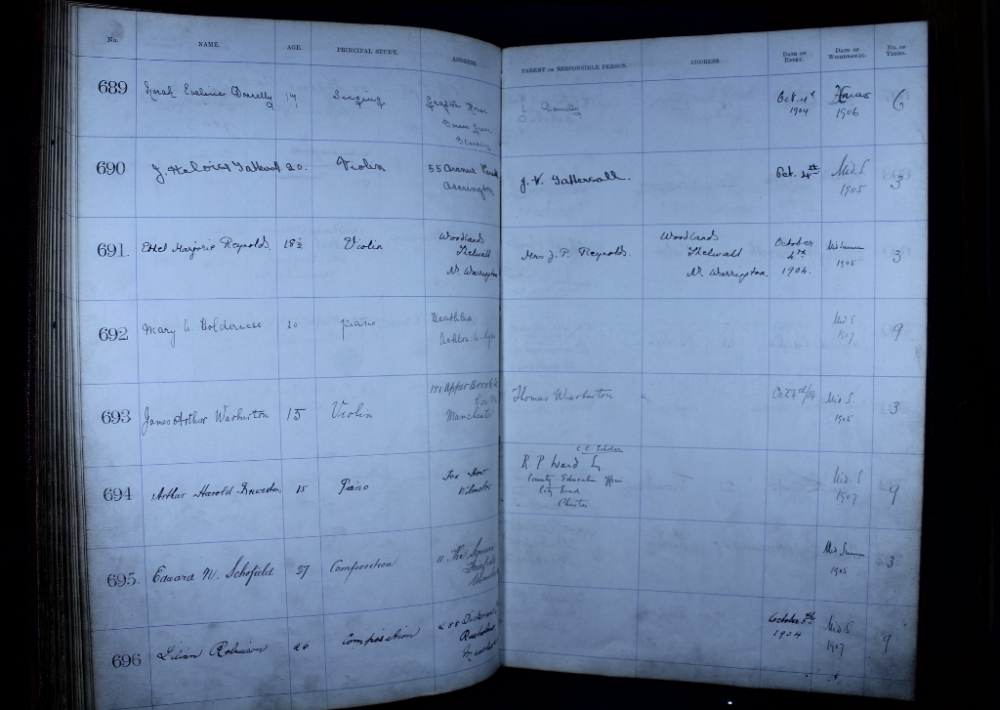 No. NAME. AGE. PRINCIPAL STUDY. ADDRESS PARENT OR RESPONSIBLE PERSON. ADDRESS. DATE OF ENTRY. DATE OF WITHDRAWAL. NO. OF TERMS.
689 Norah Eveline Donelly 19 Singing
Donelly Oct. 4th 1904 Xmas 1906 6
690 J. Heloise Tattersall 20. Violin 55 Avenue
Accrington
J. V. Tattersall. Oct. 4th Mid. S. 1905 3
691. Ethel Marjorie Reynolds 18½ Violin Woodlands
Thelwall
Nr. Warrington
Mrs J. P. Reynolds. Woodlands
Thelwall
Nr. Warrington.
October 4th 1904. Midsummer 1905 3
692 Mary 20 piano
Mid S 1907 9
693 James Arthur Warburton 15 Violin 151 Upper Brook St
Manchester
Thomas Warburton Mid S. 1905 3
694 Arthur Harold 15 Piano
Wilmslow
C.C. Scholar
R P Ward Esq
County Education Offices
City Road
Chester
Mid. S 1907 9
695. Edward N. Schofield 27 Composition 11 The Square
Fairfield
Mid Summer 1905 3
696 Lilian Robinson 20 Composition
Rusholme
Manchester
October 5th 1904 Mid S 1907 9